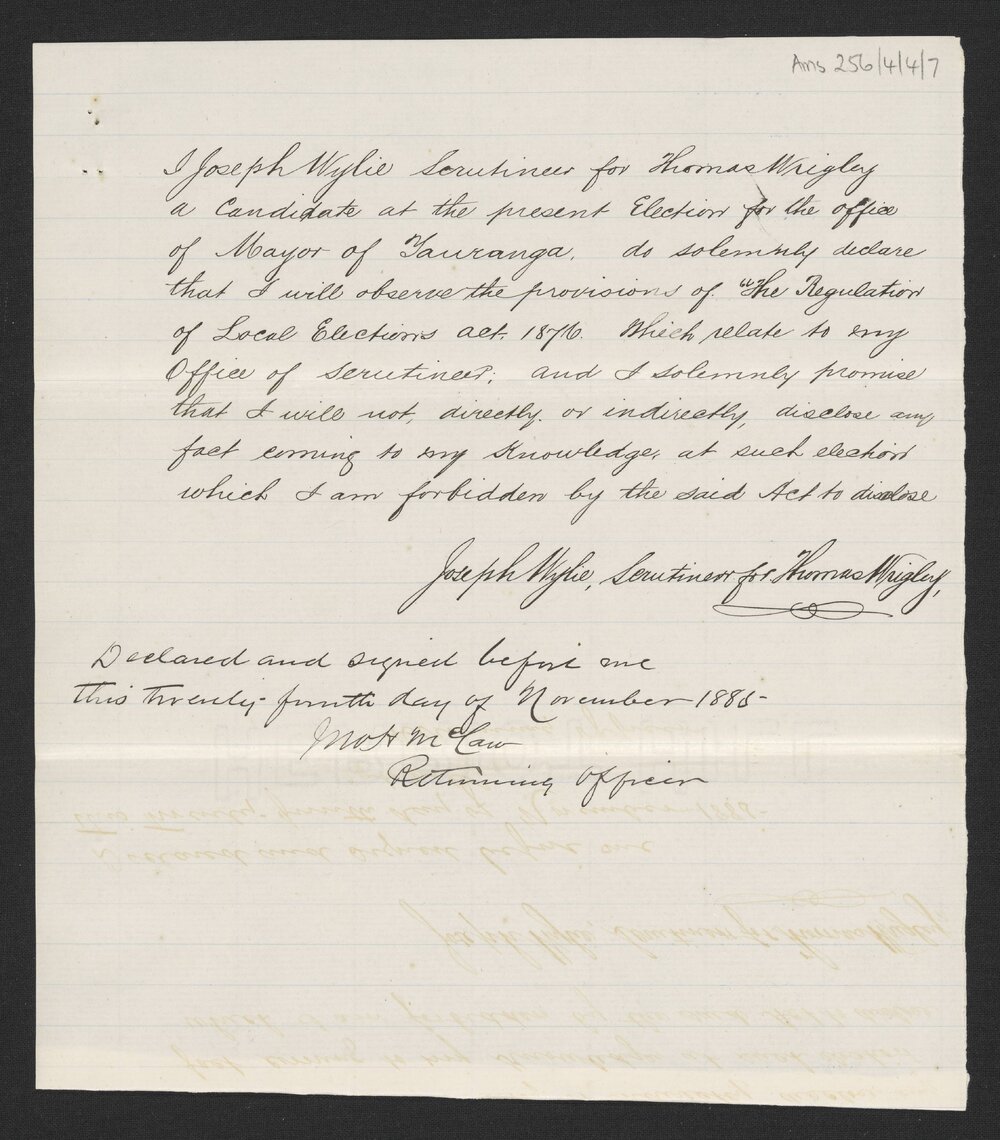 Ams 256/4/4/7
I Joseph Wylie Scrutineer for Thomas Wrigley
a Candidate at the present Election for the office
of Mayor of Tauranga. do solemnly declare
that I will observe the provisions of "The Regulation
of Local Elections act. 1876. Which relate to my
Office of scrutineer; and I solemnly promise
that I will not, directly. or indirectly, disclose any
fact coming to my Knowledge, at such election
which I am forbidden by the said Act to disclose
Joseph Wylie, Scrutineer for Thomas Wrigley,
Declared and signed before me
this twenty-fourth day of November 1885
Jno H McCaw
Returning Officer